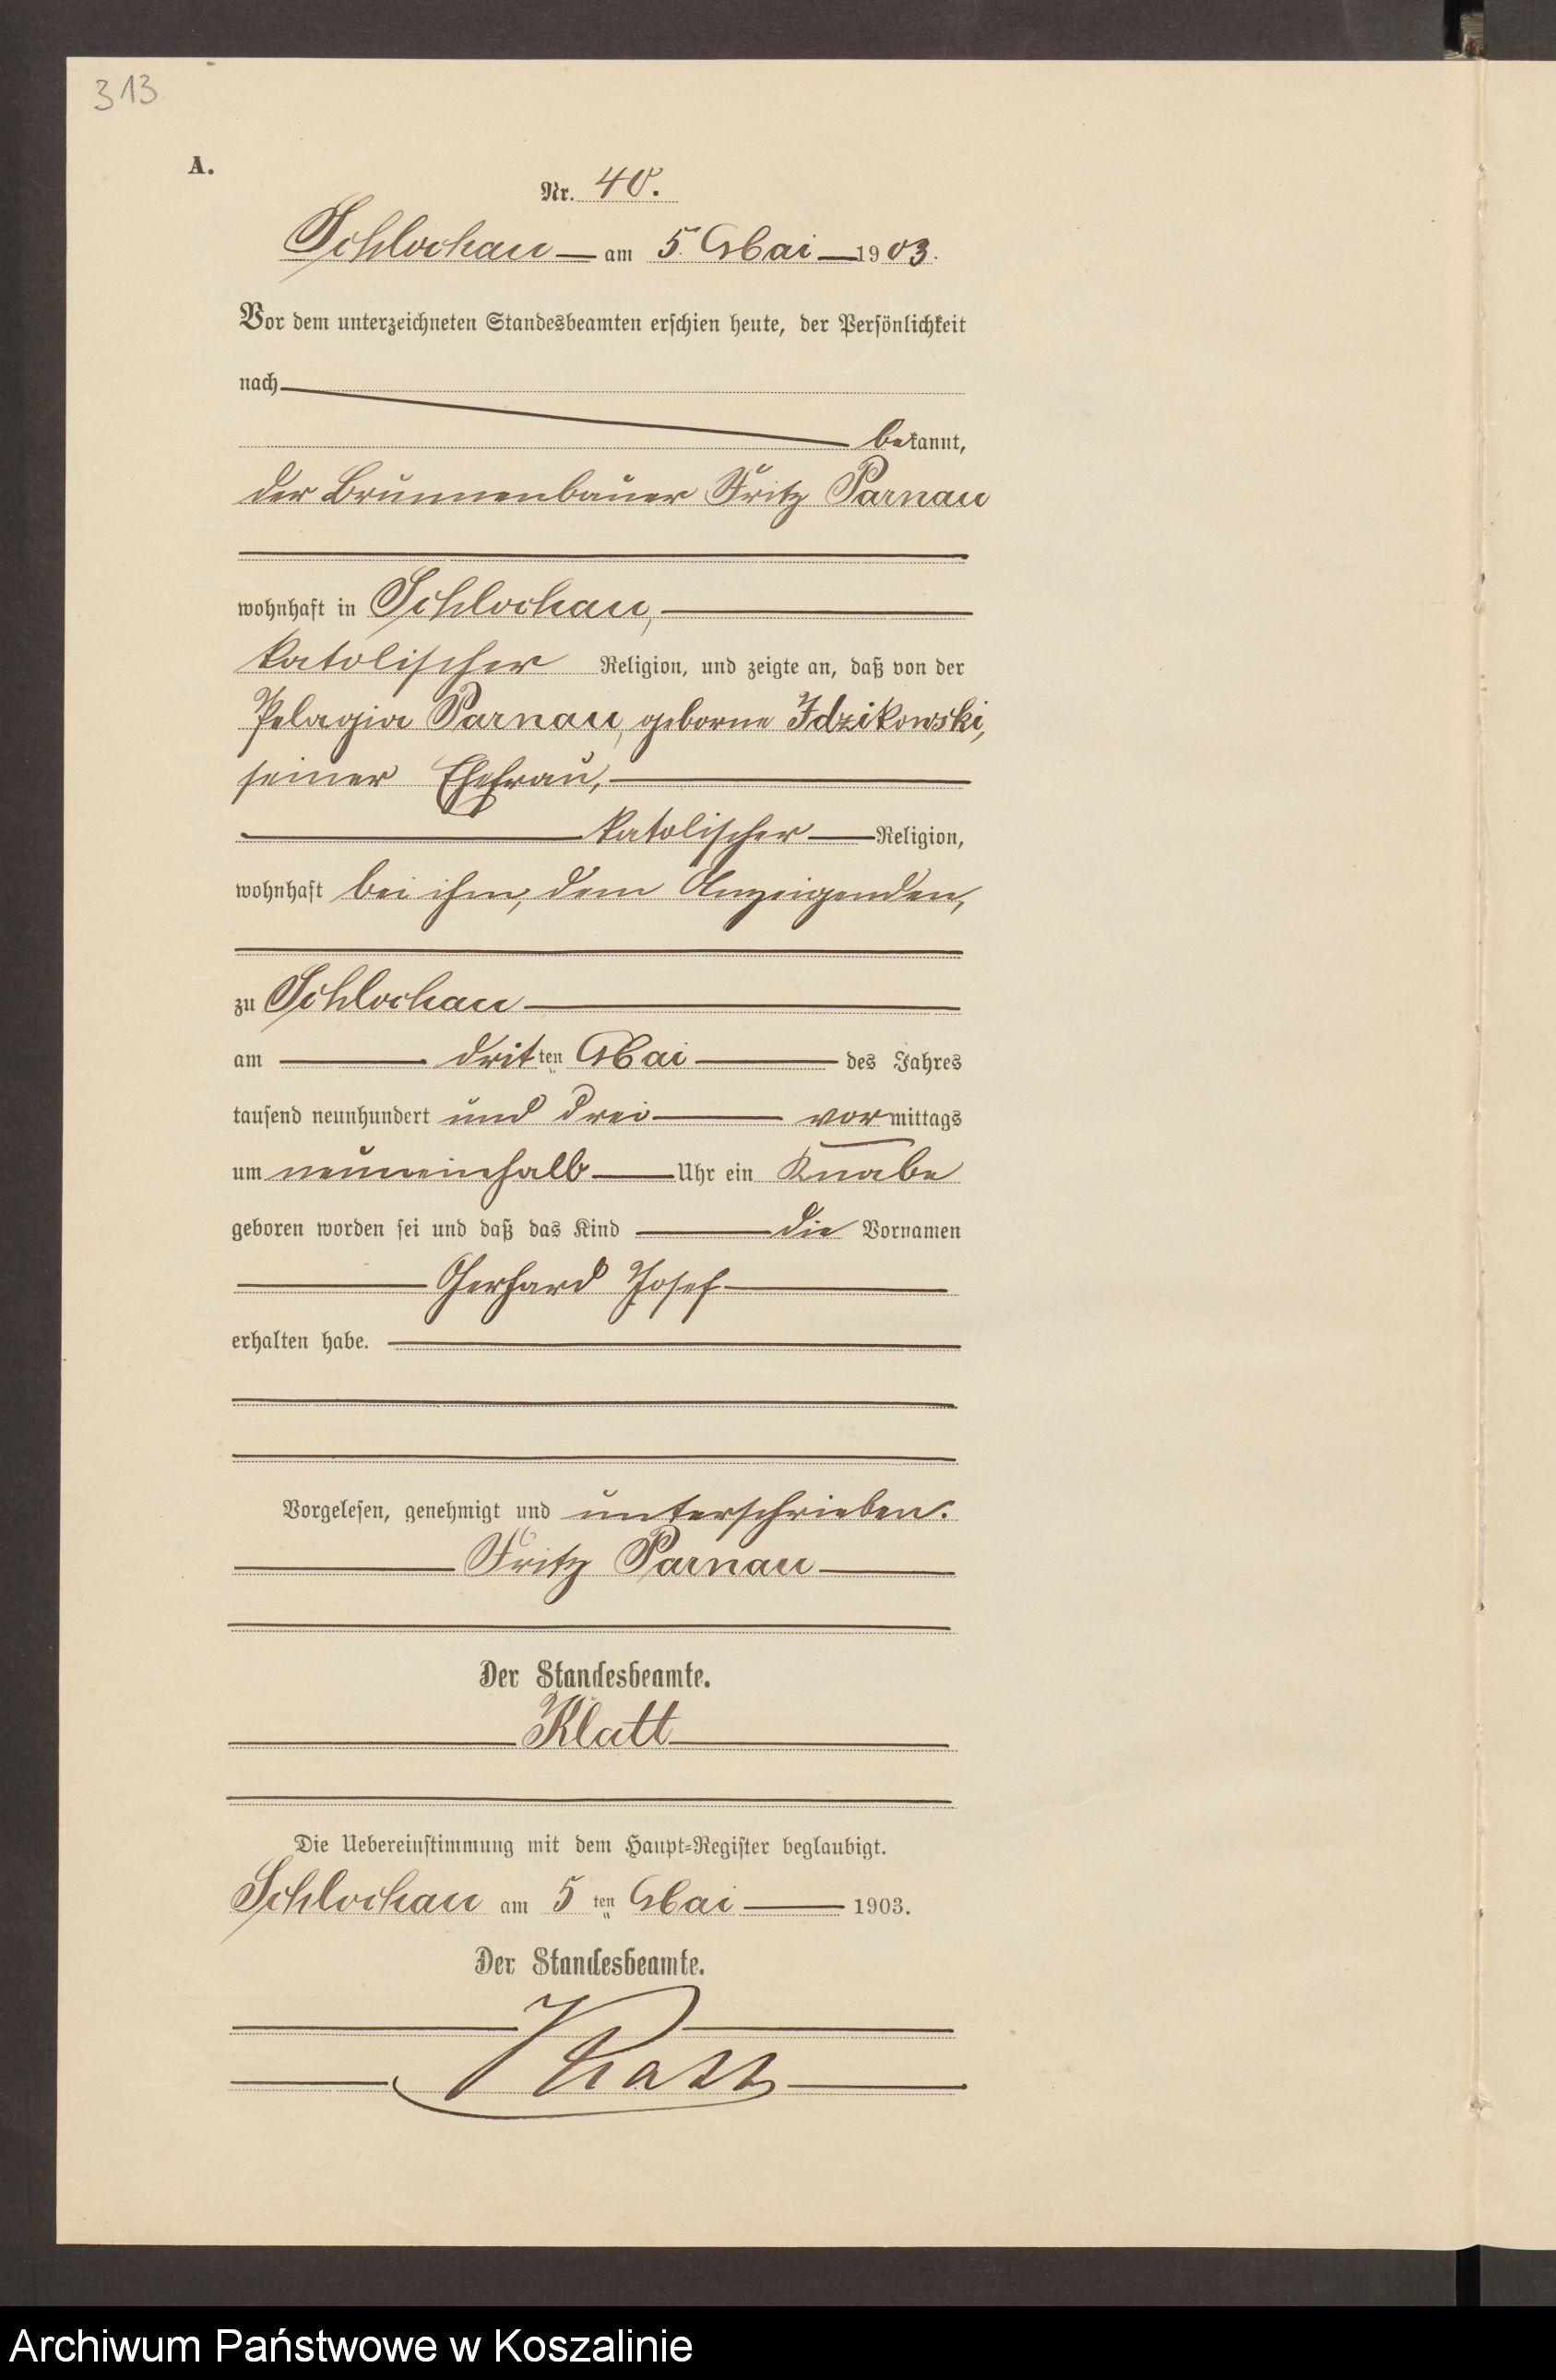 313
A.
Nr. 40.
Schlochau am 5. Mai 1903.
Vor dem unterzeichneten Standesbeamten erschien heute, der Persönlichkeit
nach
bekannt,
der Brunnenbauer Fritz Parnau
wohnhaft in Schlochau,
katolischer Religion, und zeigte an, daß von der
Pelagia Parnau, geborne Idzikowski,
seiner Ehefrau,
katolischer Religion,
wohnhaft bei ihm, dem Anzeigenden,
zu Schlochau
am dritten Mai des Jahres
tausend neunhundert und drei vormittags
um neuneinhalb Uhr ein Knabe
geboren worden sei und daß das Kind die Vornamen
Gerhard Josef
erhalten habe.
Vorgelesen, genehmigt und unterschrieben.
Fritz Parnau
Der Standesbeamte.
Klatt
Die Uebereinstimmung mit dem Haupt-Register beglaubigt.
Schlochau am 5ten Mai 1903.
Der Standesbeamte.
Klatt
Archiwum Państwowe w Koszalinie